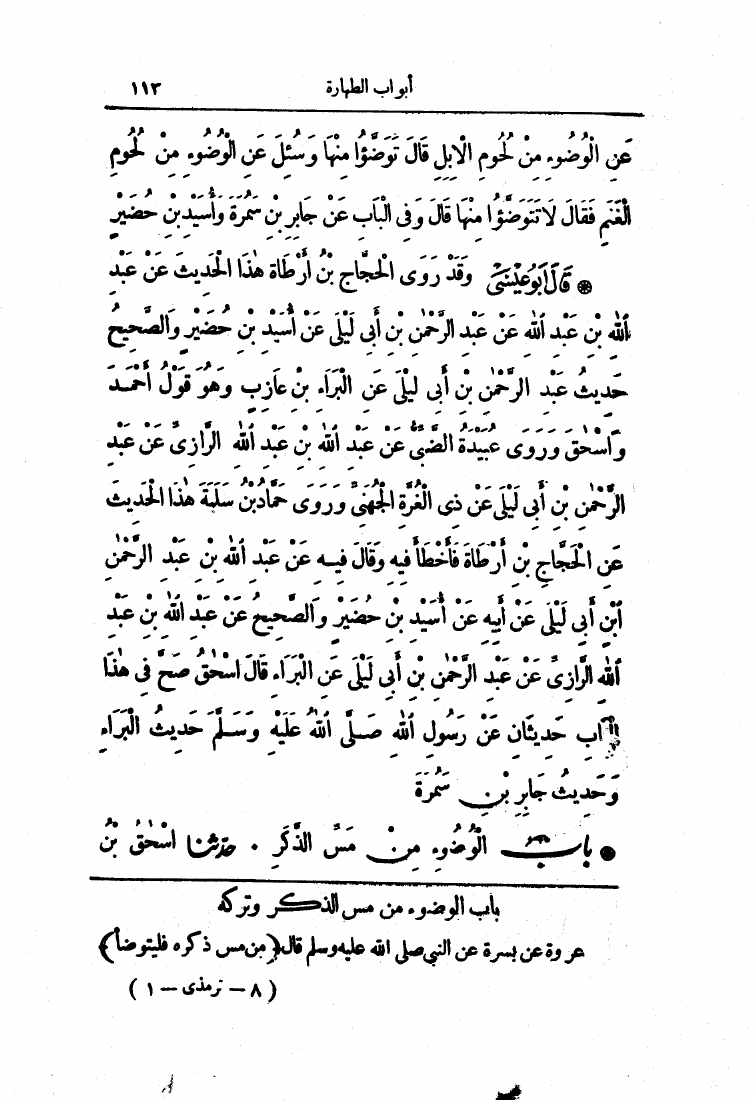 أبواب الطهارة ١١٣
عَنِ الْوُضُوءِ مِنْ لُحُومِ الْابِلِ قَالَ تَوَضَّؤُا مِنْهَا وَسُئِلَ عَنِ الْوُضُوءِ مِنْ لُحُومِ
الْغَنَمِ فَقَالَ لَا تَتَوَضَّؤُا مِنْهَا قَالَ وَفِى الْبَابِ عَنْ جَابِرِ بْنِ سَمُرَةَ وَأُسَيْدِ بْنِ حُضَيْرٍ
❋ قَالَ أَبُو عِيْسَى وَقَدْ رَوَى الْحَجَّاجُ بْنُ أَرْطَاةَ هٰذَا الْحَدِيثَ عَنْ عَبْدِ
اللهِ بْنِ عَبْدِ اللهِ عَنْ عَبْدِ الرَّحْمٰنِ بْنِ أَبِى لَيْلَى عَنْ أُسَيْدِ بْنِ حُضَيْرٍ وَالصَّحِيحُ
حَدِيثُ عَبْدِ الرَّحْمٰنِ بْنِ أَبِى لَيْلَى عَنِ الْبَرَاءِ بْنِ عَازِبٍ وَهُوَ قَوْلُ أَحْمَدَ
وَاسْحٰقَ وَرَوَى عُبَيْدَةُ الضَّبِّىُّ عَنْ عَبْدِ اللهِ بْنِ عَبْدِ اللهِ الرَّازِىِّ عَنْ عَبْدِ
الرَّحْمٰنِ بْنِ أَبِى لَيْلَى عَنْ ذِى الْغُرَّةِ الْجُهَنِىِّ وَرَوَى حَمَّادُ بْنُ سَلَمَةَ هٰذَا الْحَدِيثَ
عَنِ الْحَجَّاجِ بْنِ أَرْطَاةَ فَأَخْطَأَ فِيهِ وَقَالَ فِيهِ عَنْ عَبْدِ اللهِ بْنِ عَبْدِ الرَّحْمٰنِ
ابْنِ أَبِى لَيْلَى عَنْ أَبِيهِ عَنْ أُسَيْدِ بْنِ حُضَيْرٍ وَالصَّحِيحُ عَنْ عَبْدِ اللهِ بْنِ عَبْدِ
اللهِ الرَّازِىِّ عَنْ عَبْدِ الرَّحْمٰنِ بْنِ أَبِى لَيْلَى عَنِ الْبَرَاءِ قَالَ اسْحٰقُ صَحَّ فِى هٰذَا
الْبَابِ حَدِيثَانِ عَنْ رَسُولِ اللهِ صَلَّى اللهُ عَلَيْهِ وَسَلَّمَ حَدِيثُ الْبَرَاءِ
وَحَدِيثُ جَابِرِ بْنِ سَمُرَةَ
❋ بَابُ الْوُضُوءِ مِنْ مَسِّ الذَّكَرِ . حدثنا اسْحٰقُ بْنُ
باب الوضوء من مس الذكر وتركه
عروة عن بسرة عن النبي صلى الله عليه وسلم قال ﴿من مس ذكره فليتوضأ﴾
( ٨ – ترمذى – ١ )